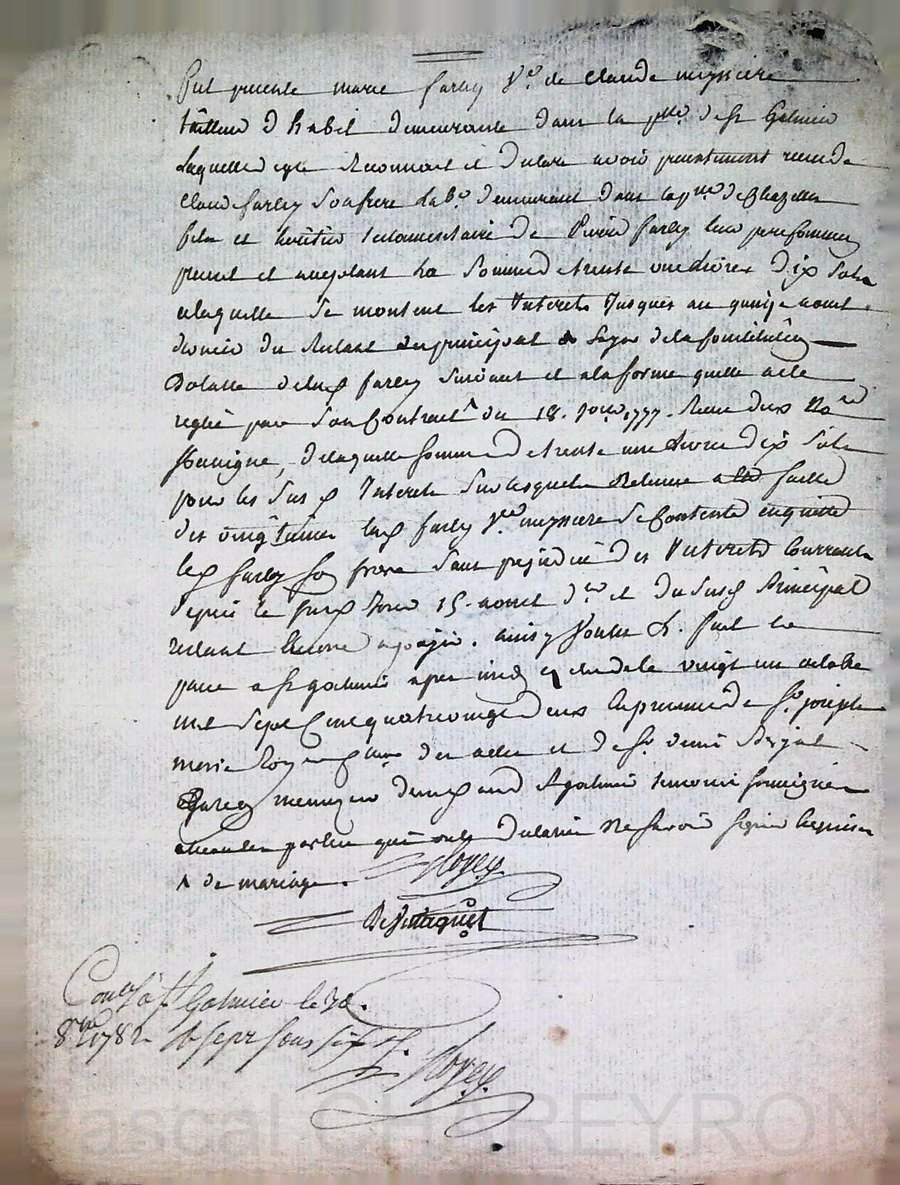 Fut presente marie farley Vve de claude meyniere
tailleur d'habit demeurante dans la psse de St Galmier
Laquelle reconnoit et declare avoir presentement receu de
claude farley son frere Labr demeurant dans la psse de Chazelles
fils et heritier testamentaire de Pierre farley leur pere commun
present et acceptant La Somme de trente une livres dix Sols
a laquelle Se montent les Interets Jusques au quinze aout
dernier du Restant du principal a Seyer de la Constitution
dotalle de lad farley Suivant et a la forme quelle a ete
reglée par Son Contract du 18. 1777. Receu dud No
Soussigné, de laquelle somme de trente une livres dix Sols
pour les Susd Interets Sur lesquels Retenue faitte
des vingtiemes lad farley Vve meyniere Se Contente en quitte
led farley son frere Sans prejudice des Interets Courrents
depuis le susd Jour 15. aout der et du Susd Principal
restant Encore a payer. ainsy Voulu &. fait et
passé a St galmier apres midy le vingt un octobre
mil Sept Cent quatre vingt deux En presence de Sr joseph
marie Roy des actes et de Sr denis
menuizier demeurant St galmier temoins Soussignés
non les parties qui ont declaré ne Savoir Signer Enquises
^ de mariage.
Contlé à St Galmier le 30.
8bre 1782 R sept sous six d.
Pascal CHAREYRON